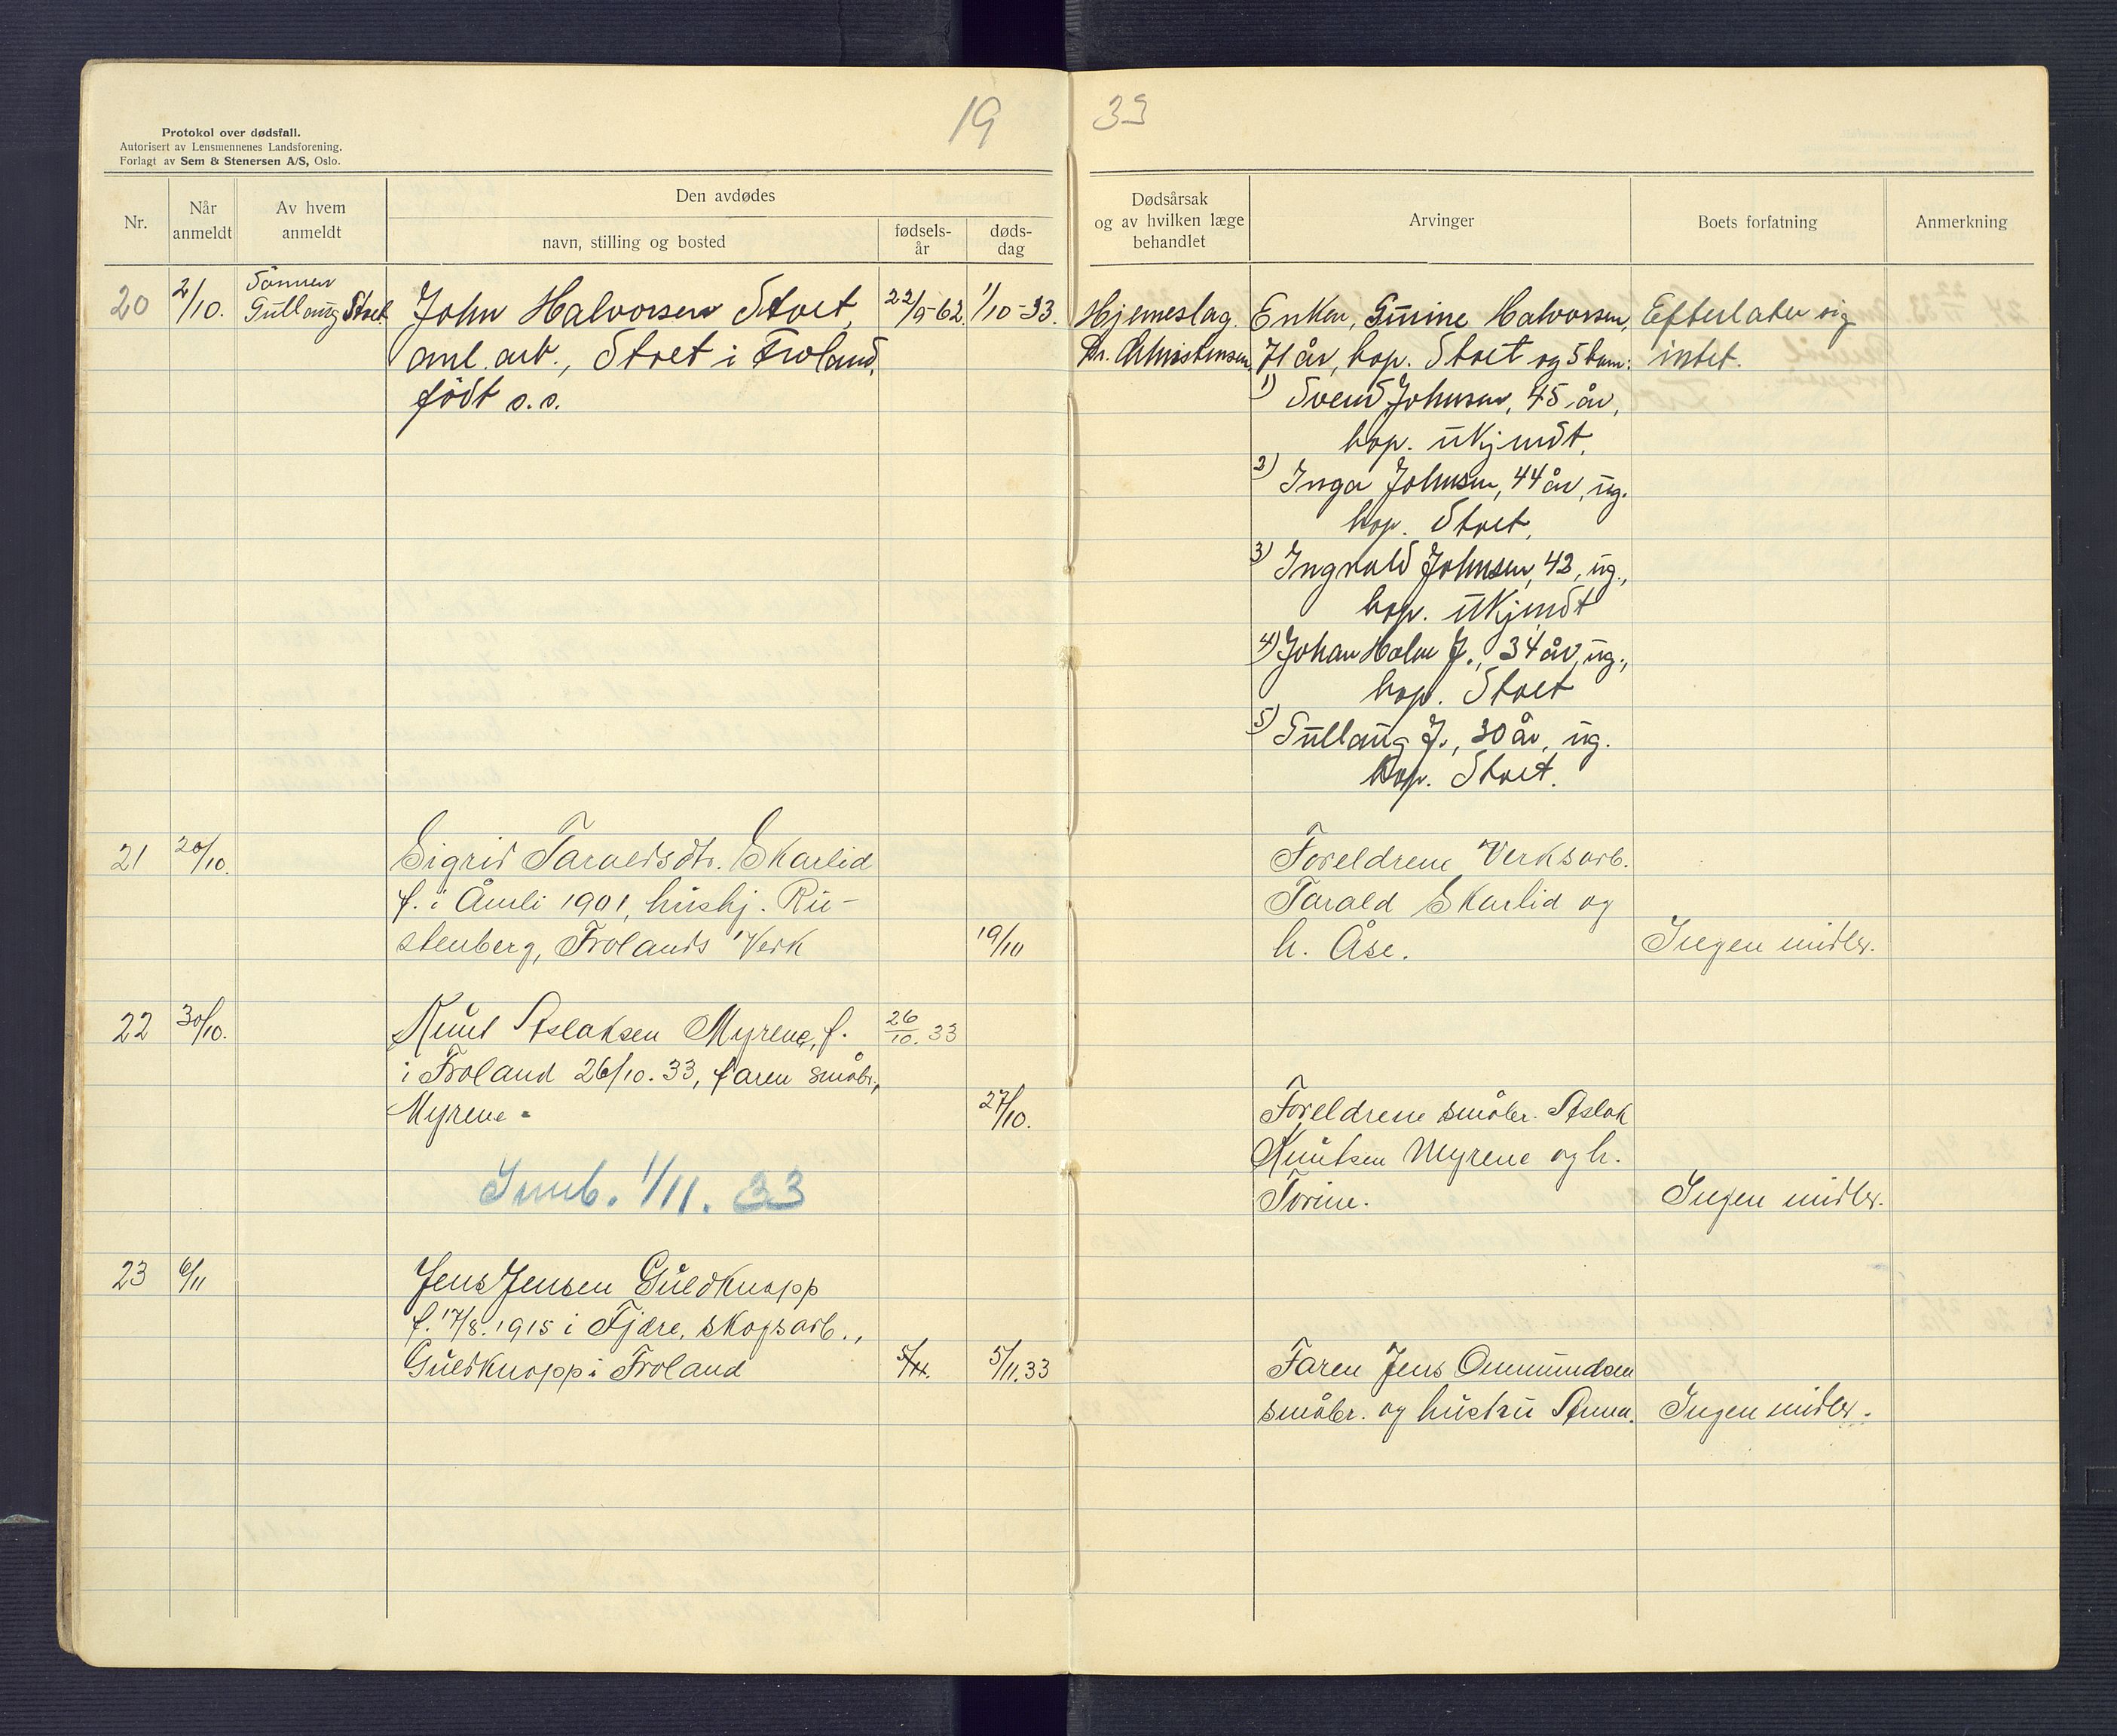 19 33
Protokol over dødsfall.
Autorisert av Lensmennenes Landsforening.
Forlagt av Sem & Stenersen A/S, Oslo.
Nr.
Når anmeldt
Av hvem anmeldt
Den avdødes
navn, stilling og bosted
fødsels-år
døds-dag
Dødsårsak
og av hvilken læge
behandlet
Arvinger
Boets forfatning
Anmerkning
20
2/10.
Sønnen
Gullaug Stoet
John Halvorsen Stoet,
anl. arb., Stoet i Froland,
født s. s.
22/5-62.
1/10-33.
Hjerneslag.
Dr. Christensen.
Enken, Gunine Halvorsen,
71 år, bop. Stoet og 5 barn:
1) Svend Johnsen, 45 år,
bop. ukjendt.
2) Inga Johnsen, 44 år, ug.
bop. Stoet,
3) Ingvald Johnsen, 42, ug.,
bop. ukjendt
4) Johan Holm J., 34 år, ug.,
bop. Stoet
5) Gullaug J., 30 år, ug.
bop. Stoet.
Efterlater sig
intet.
21
20/10.
Sigrid Taraldsdtr. Skarlid
f. i Åmli 1901, hushj. Ru-
stenberg, Frolands Verk
19/10
Foreldrene Verksarb.
Tarald Skarlid og
h. Åse.
Ingen midler.
22
30/10.
Knut Aslaksen Myrene, f.
i Froland 26/10.33, faren småbr.,
Myrene.
26/10. 33
27/10.
Foreldrene småbr. Aslak
Knutsen Myrene og h.
Torine.
Ingen midler.
Innb. 1/11. 33
23
6/11
Jens Jensen Guldknapp
f. 17/8. 1915 i Fjære, skogsarb.,
Guldknapp i Froland
5/11.
5/11.33
Faren Jens Ommundsen
småbr. og hustru Anna.
Ingen midler.